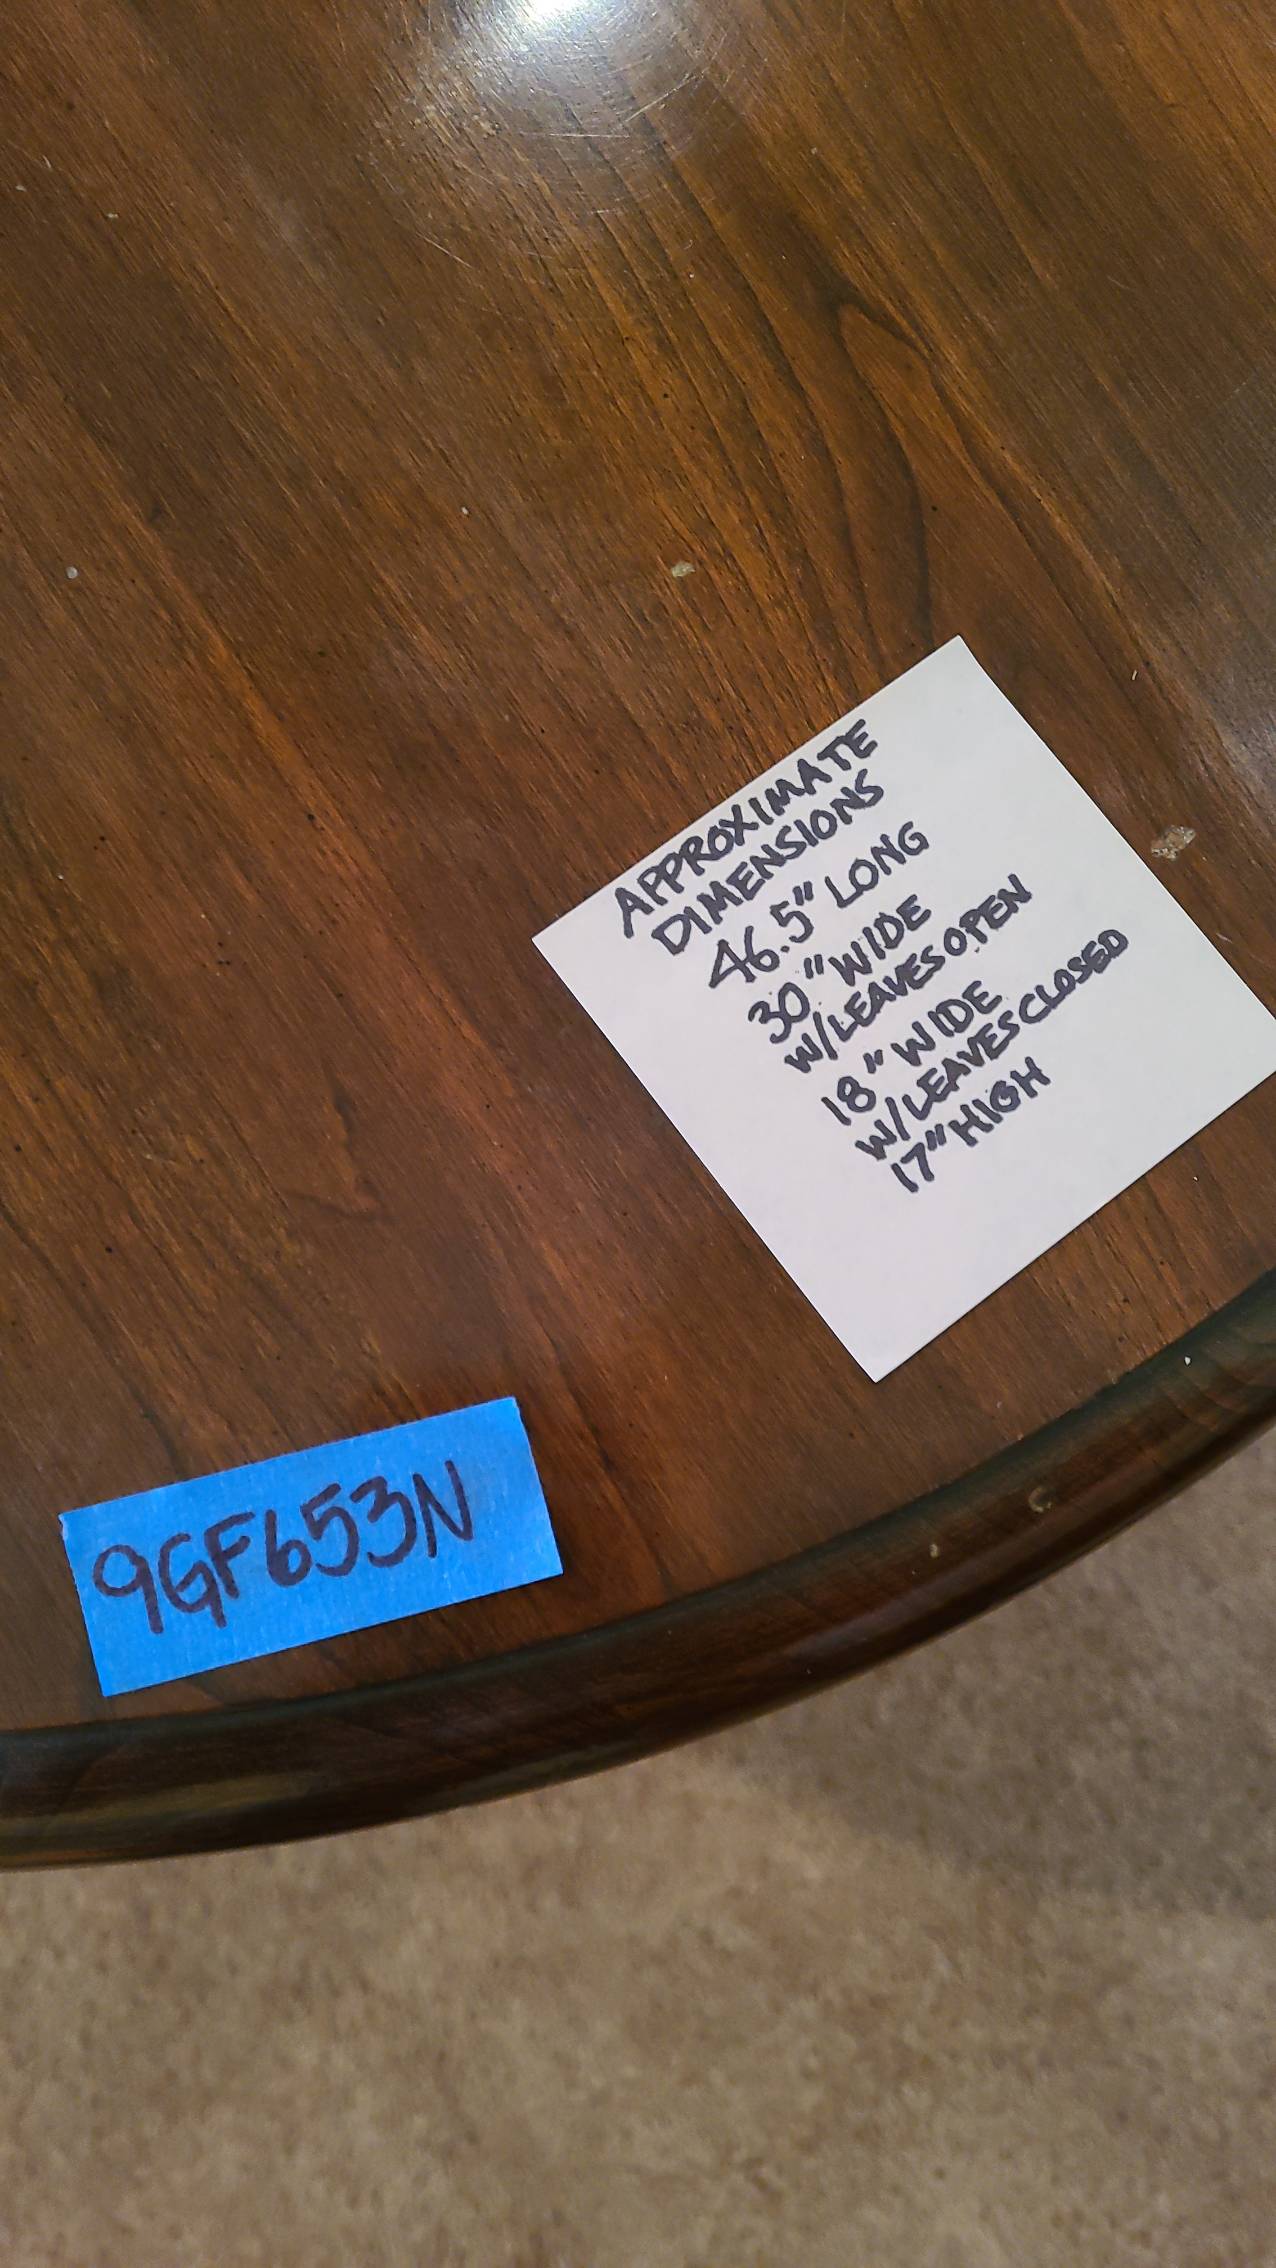 APPROXIMATE
DIMENSIONS
46.5" LONG
30" WIDE
W/LEAVES OPEN
18" WIDE
W/LEAVES CLOSED
17" HIGH
9GF653N